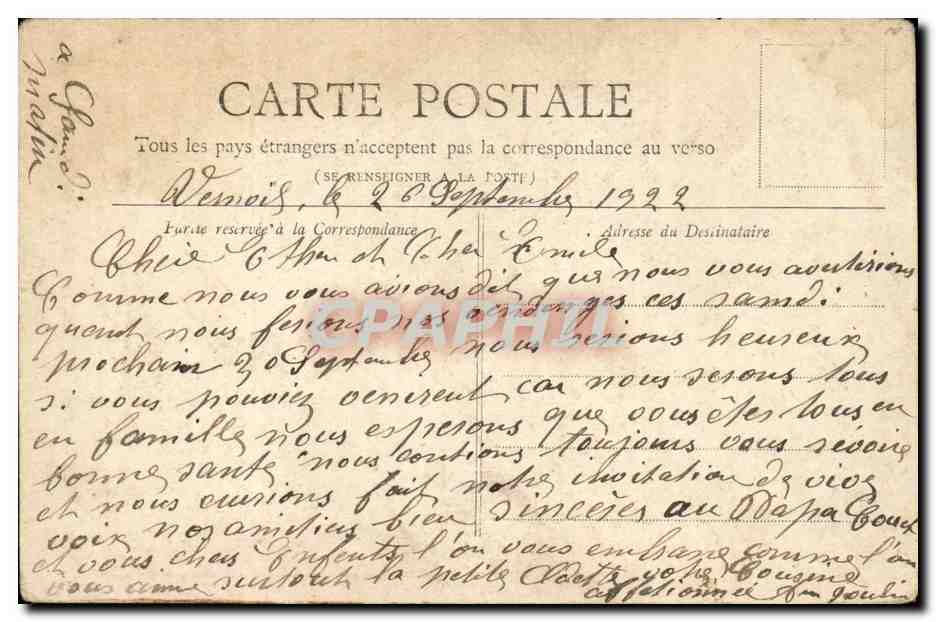 CARTE POSTALE
Tous les pays étrangers n'acceptent pas la correspondance au verso
(SE RENSEIGNER A LA POSTE)
le 26 Septembre 1922
Partie réservée à la Correspondance
Adresse du Destinataire
Chère et Cher Emile
Comme nous vous avions dit que nous vous avertirions
quent nous ferions nos vendenges ces samdi
prochain 30 Septembre nous serions heureux
si vous pouviez venirent car nous serons tous
en famille nous esperons que vous êtes tous en
bonne santé nous contions toujours vous révoire
et nous aurions fait notre invitation de vive
voix nos amitiés bien sincères au Papa
et vous chers Enfents l'on vous embrasse comme l'on
vous aime surtout la petite Odette votre Cousine
affetionnée
CPAPHIL
a
matin